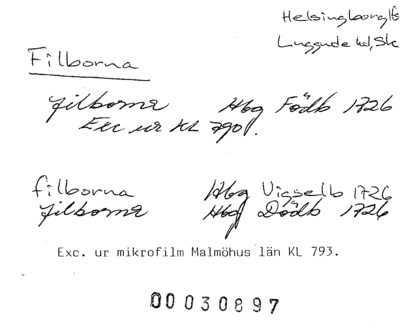 Helsingborg lfs
Luggude hd, Sk
Filborna
filborna Hbg Födb 1726
Exc ur KL 790.
filborna Hbg Vigselb 1726
filborna Hbg Dödb 1726
Exc. ur mikrofilm Malmöhus län KL 793.
00030897